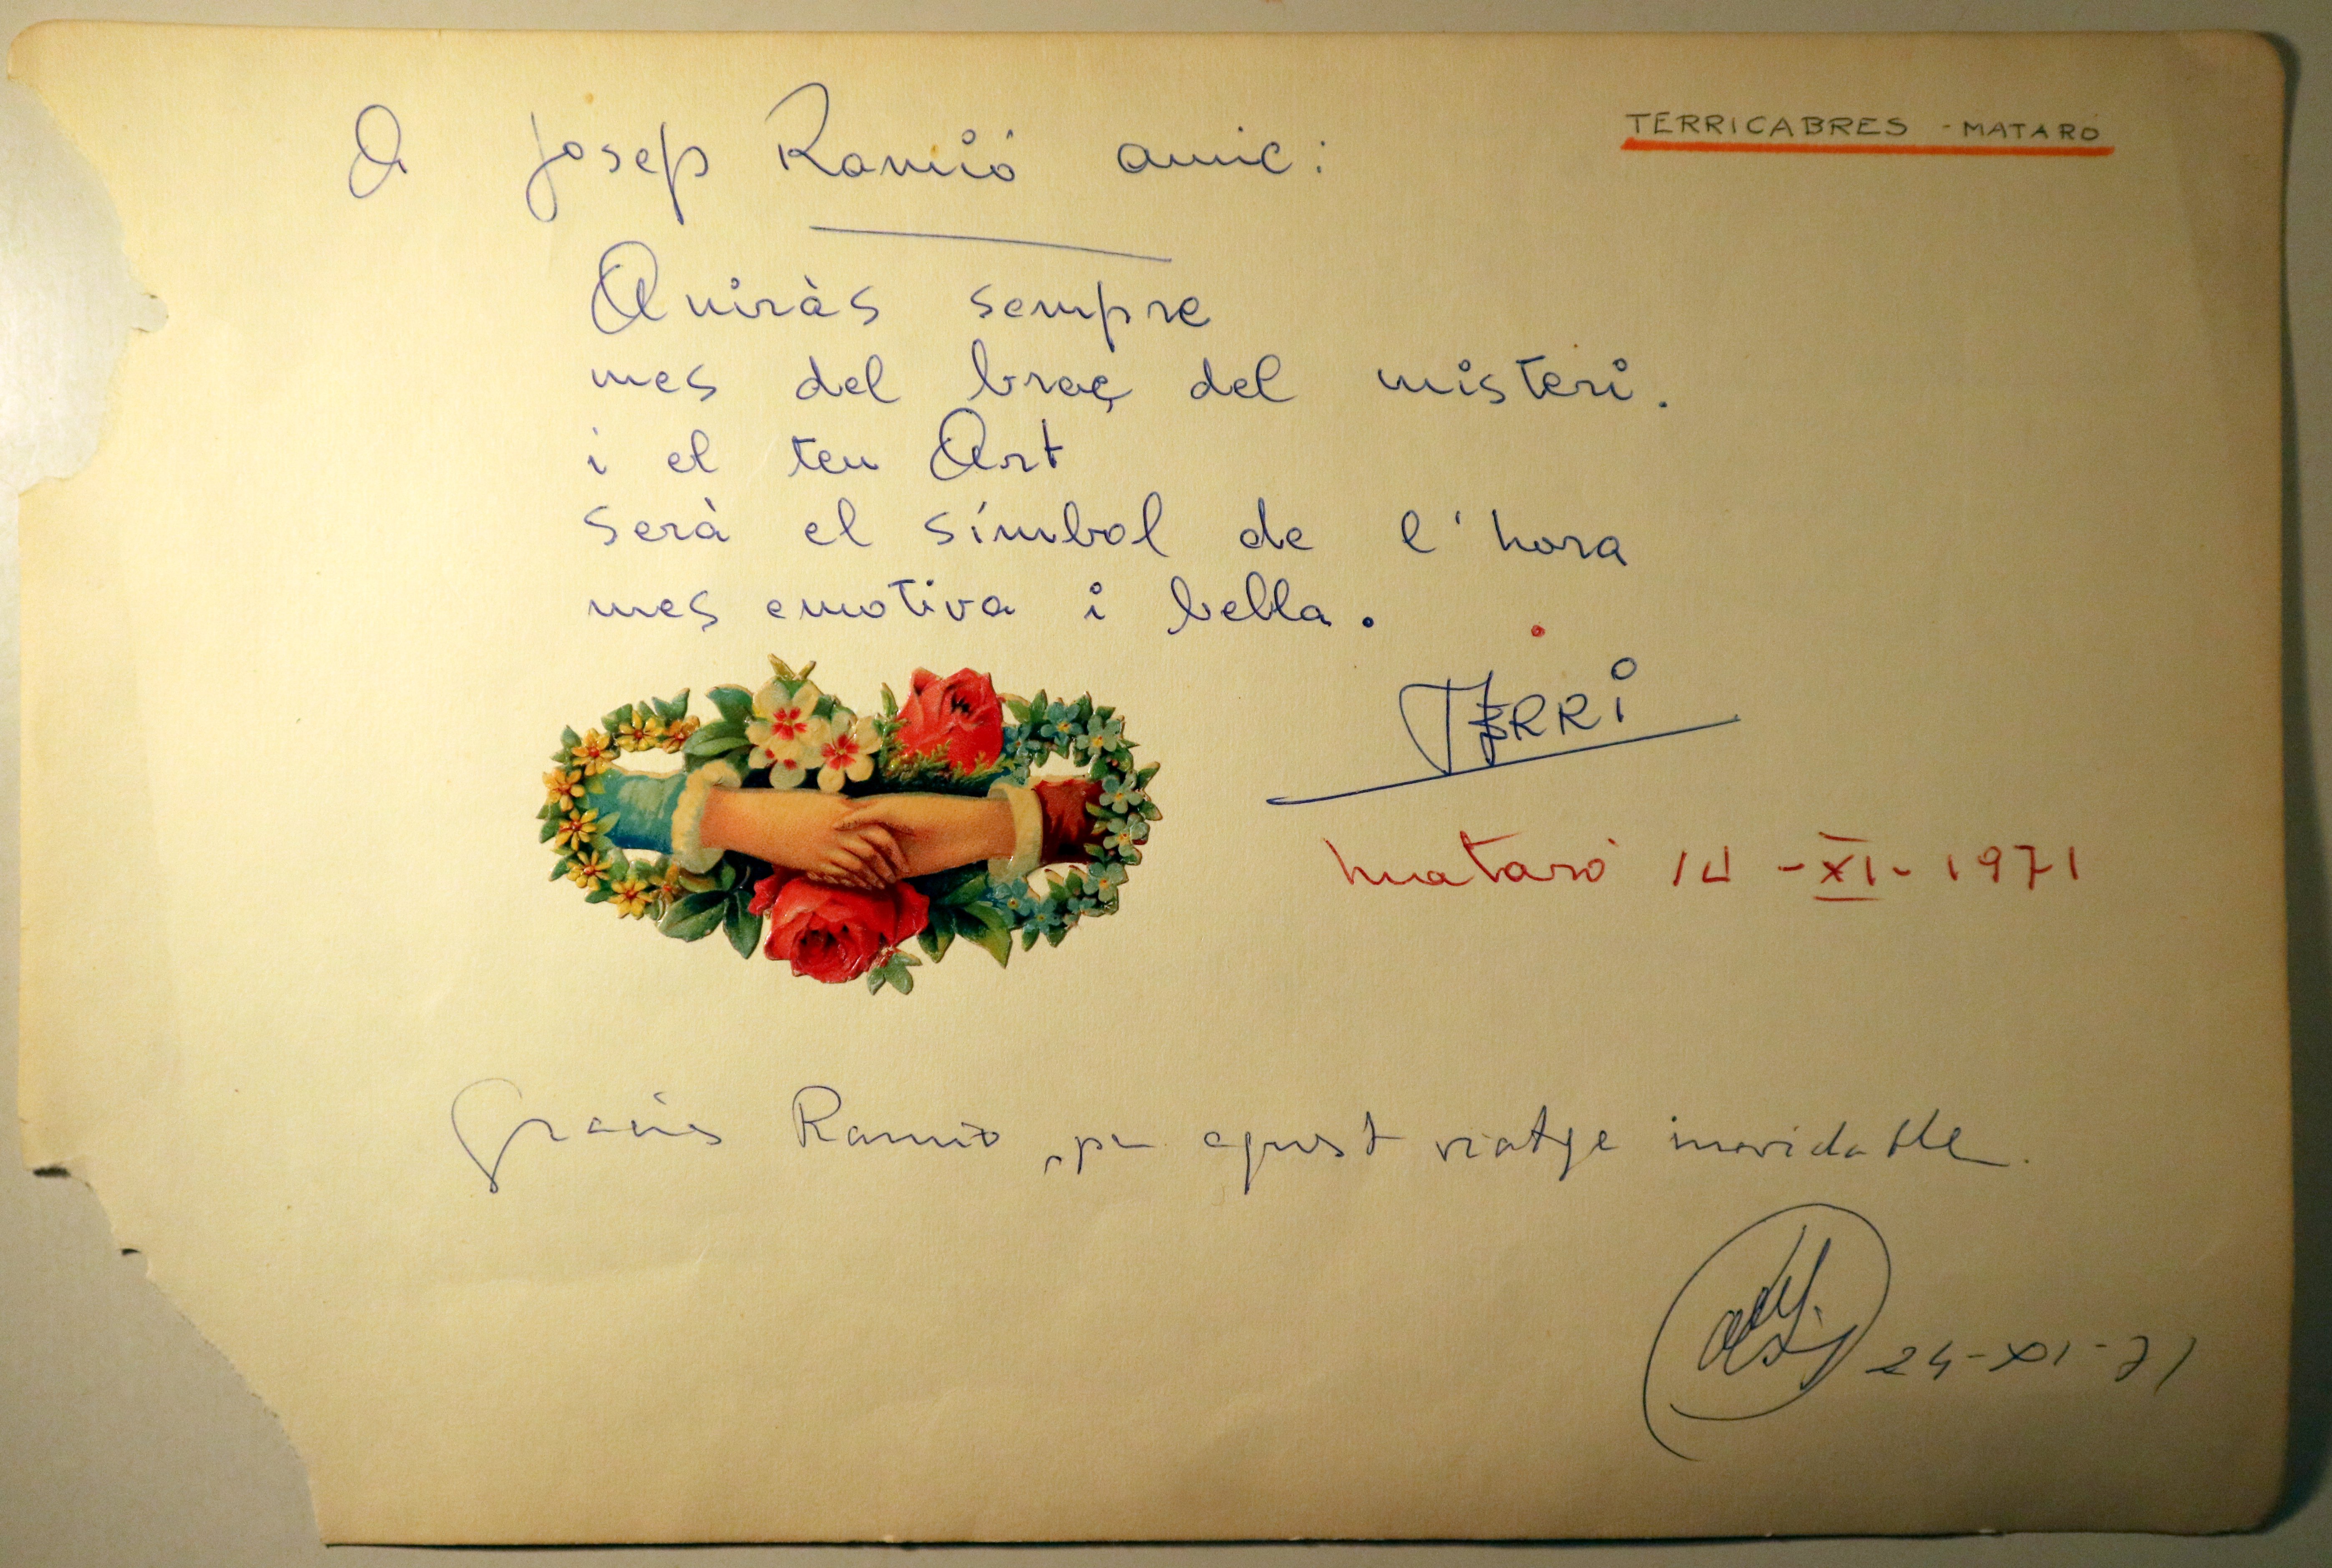 TERRICABRES - MATARÓ
A Josep Ramió amic:
Aniràs sempre
mes del braç del misteri.
i el teu Art
serà el símbol de l'hora
mes emotiva i bella.
TERRi
Mataró 14 - XI - 1971
Gracies Ramio, per aquest viatge inovidable.
24-XI-71